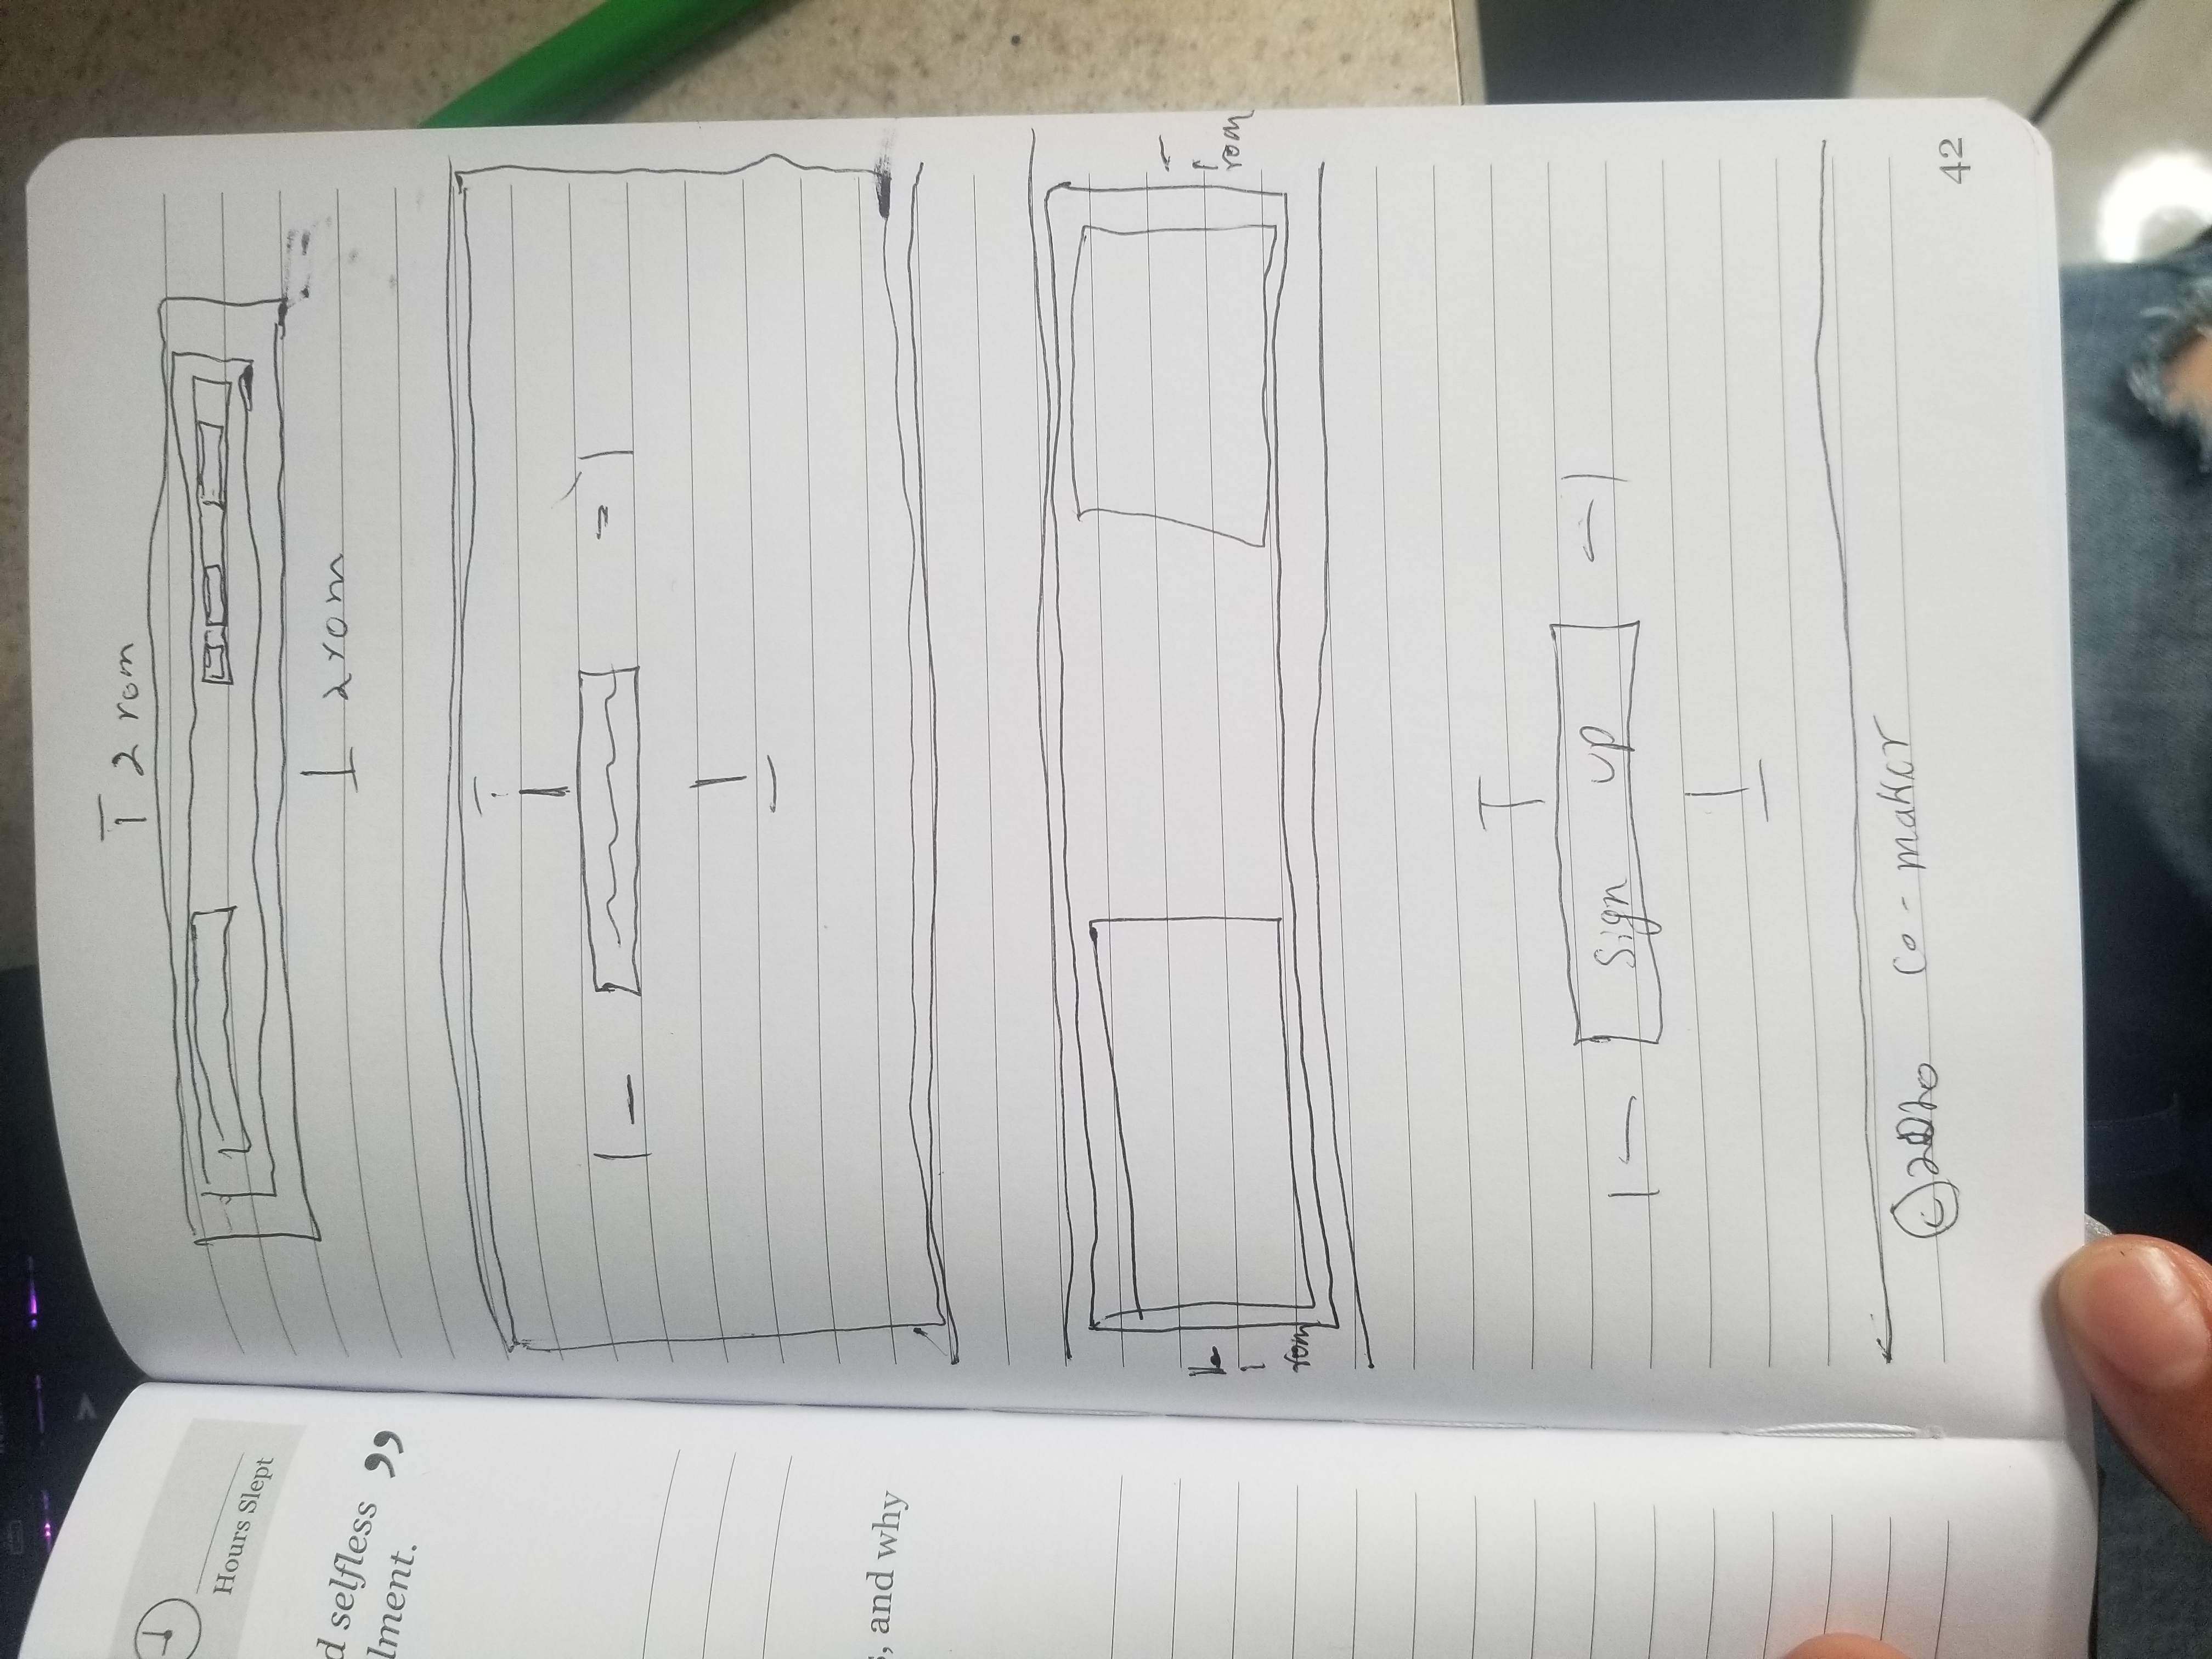 Hours Slept
d selfless ”
lment.
s, and why
2 rom
2 rom
1
rom
1
rom
Sign up
© 2020 Co-maker
42